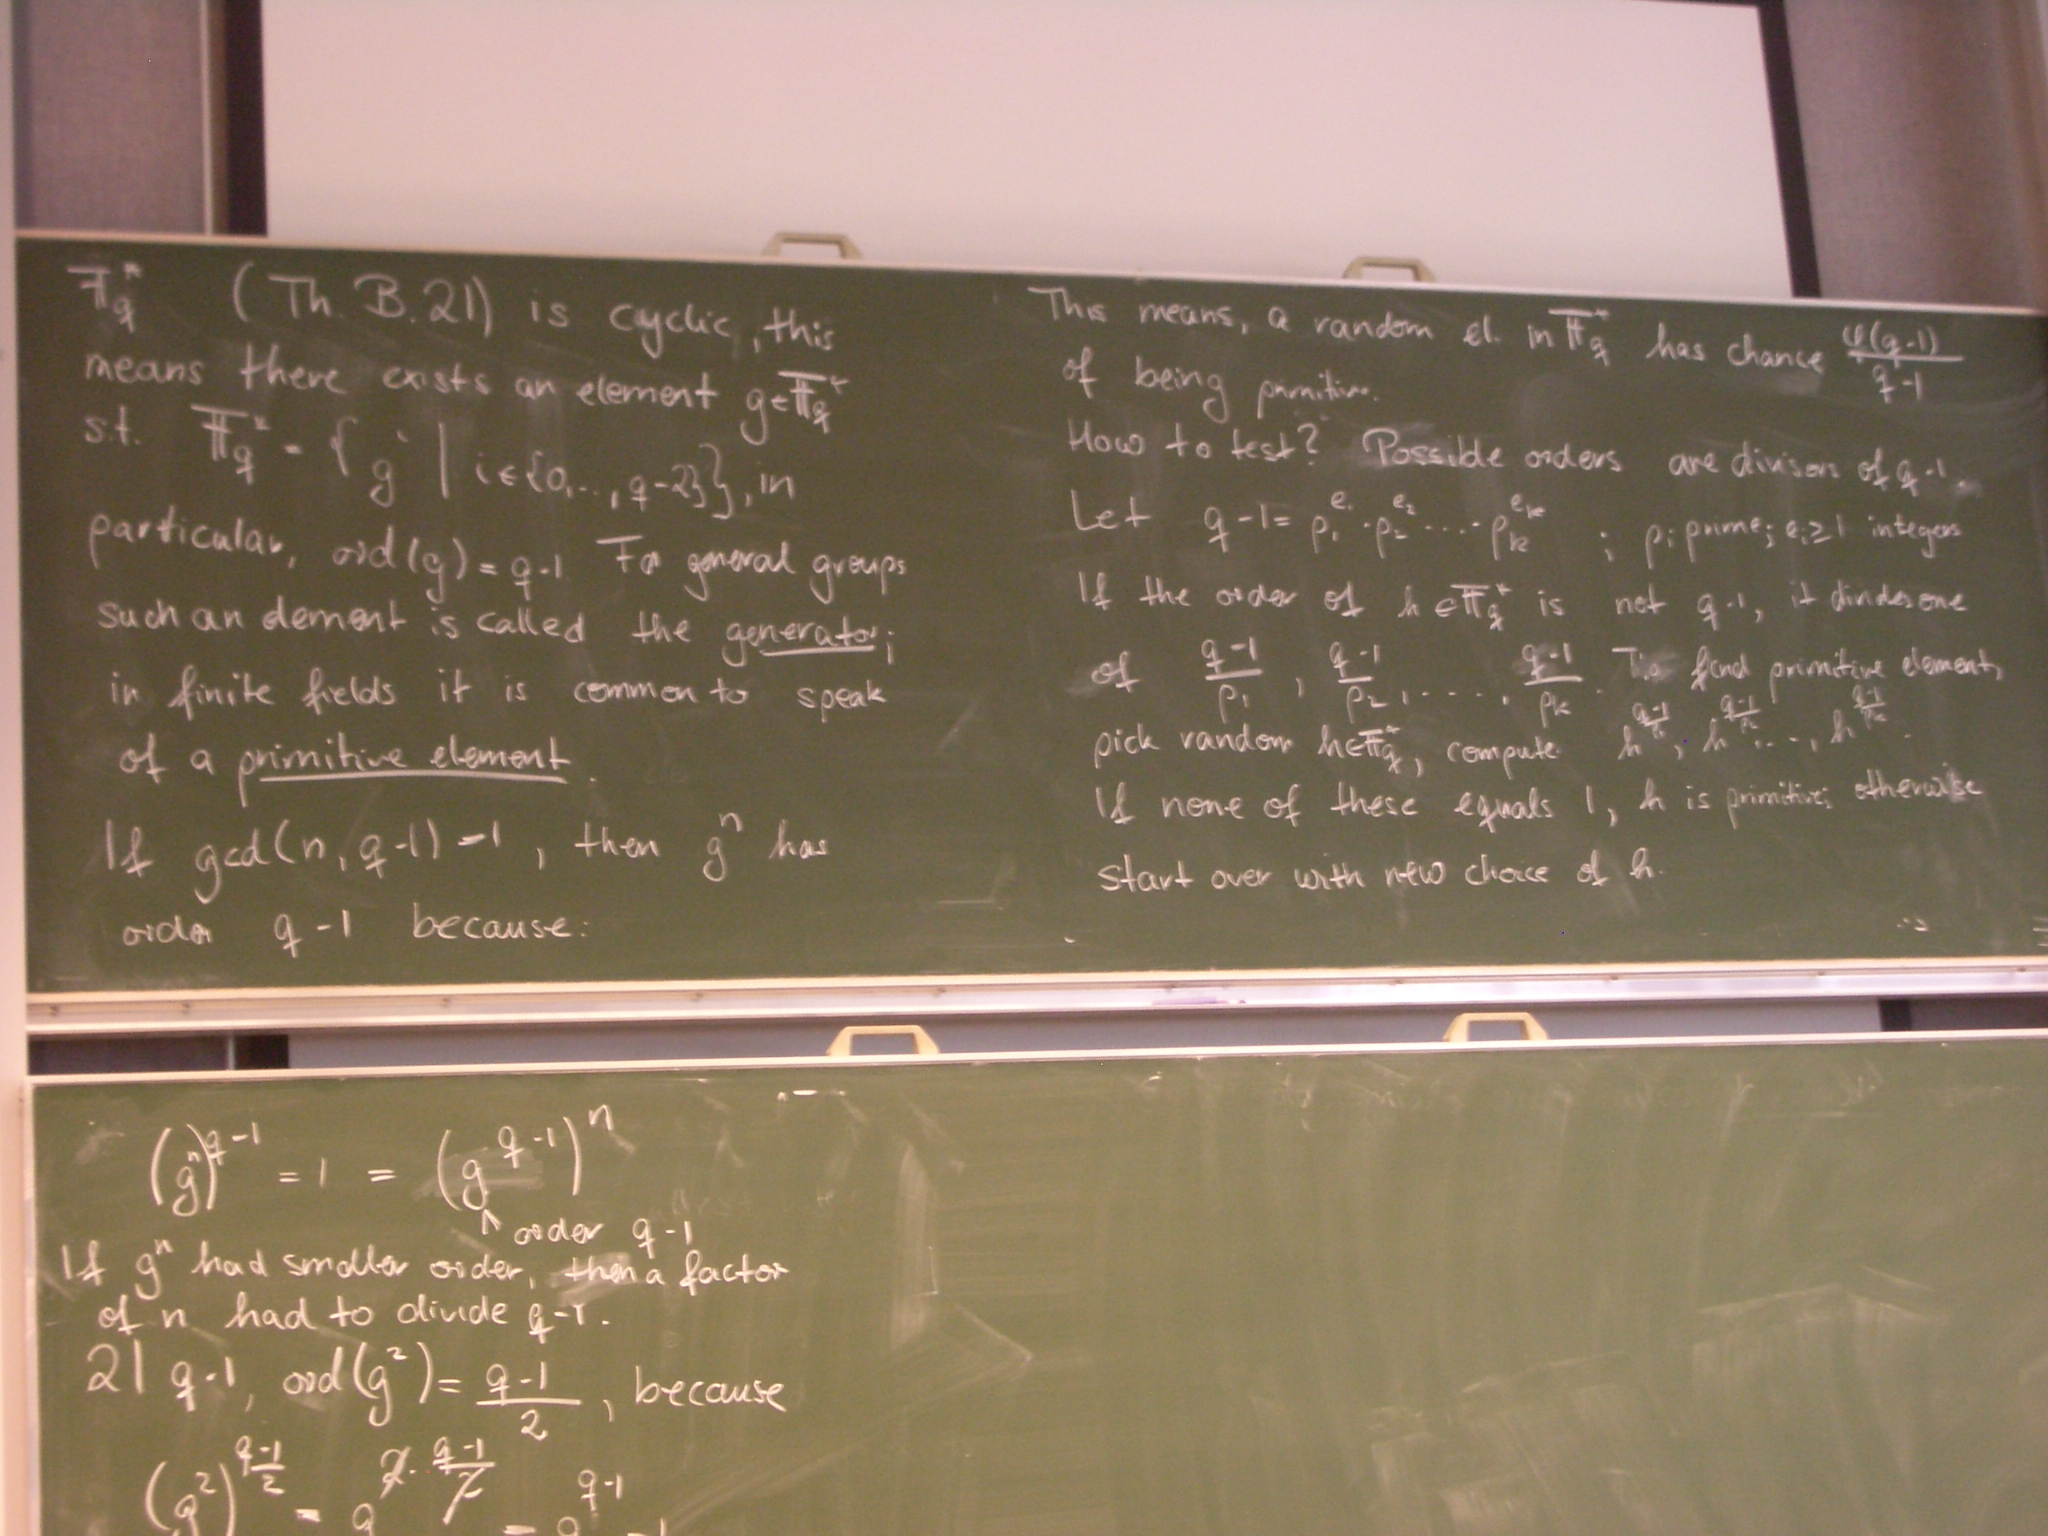 𝔽_q^* (Th. B.21) is cyclic, this
means there exists an element g ∈ 𝔽_q^*
s.t. 𝔽_q^* = { g^i | i ∈ {0,..., q-2}}, in
particular, ord(g) = q-1 For general groups
such an element is called the generator;
in finite fields it is common to speak
of a primitive element.
If gcd(n, q-1) = 1, then g^n has
order q-1 because:
This means, a random el. in 𝔽_q^* has chance φ(q-1)/(q-1)
of being primitive.
How to test? Possible orders are divisors of q-1.
Let q-1 = p_1^{e_1} · p_2^{e_2} · ... · p_k^{e_k} ; p_i prime; e_i ≥ 1 integers
If the order of h ∈ 𝔽_q^* is not q-1, it divides one
of (q-1)/p_1, (q-1)/p_2, ...., (q-1)/p_k. To find primitive element,
pick random h ∈ 𝔽_q^*, compute h^{(q-1)/p_1}, h^{(q-1)/p_2}, ..., h^{(q-1)/p_k}.
If none of these equals 1, h is primitive; otherwise
start over with new choice of h.
(g^n)^{q-1} = 1 = (g^{q-1})^n
^ order q-1
If g^n had smaller order, then a factor
of n had to divide q-1.
2 | q-1, ord(g^2) = (q-1)/2, because
(g^2)^{(q-1)/2} = g^{2·(q-1)/2} = g^{q-1} = 1